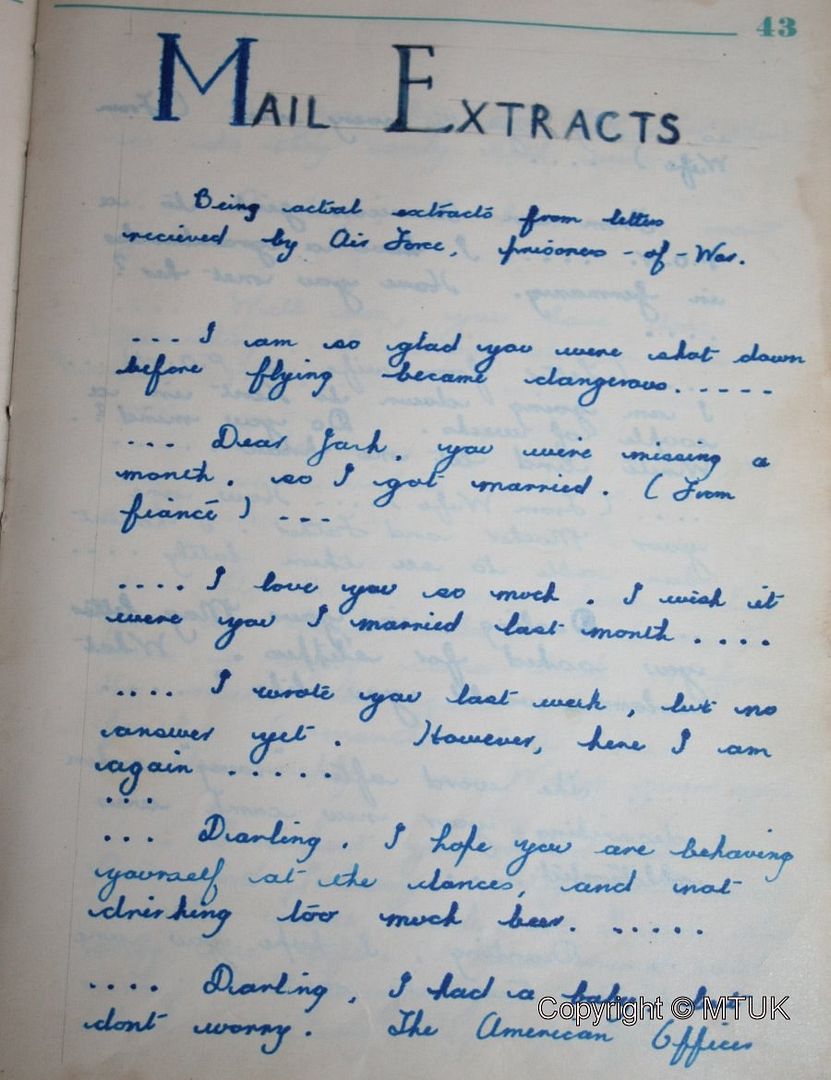 43
MAIL EXTRACTS
Being actual extracts from letters
recieved by Air Force, prisoners-of-War.
... I am so glad you were shot down
before flying became dangerous.....
... Dear Jack, you were missing a
month, so I got married. (From
fiancé) ...
.... I love you so much. I wish it
were you I married last month ....
.... I wrote you last week, but no
answer yet. However, here I am
again .....
...
... Darling, I hope you are behaving
yourself at the dances, and not
drinking too much beer. .....
.... Darling, I had a baby, but
dont worry. The American Officer
Copyright © MTUK